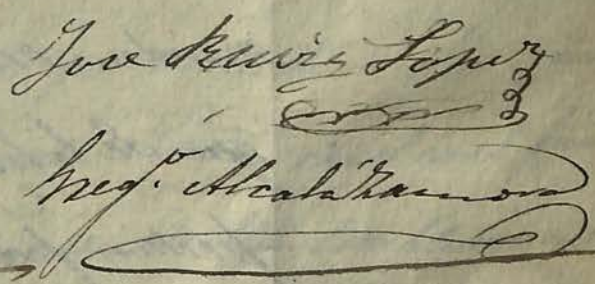 Jose Ramiz Lopez
Greg.º Alcalá Zamora